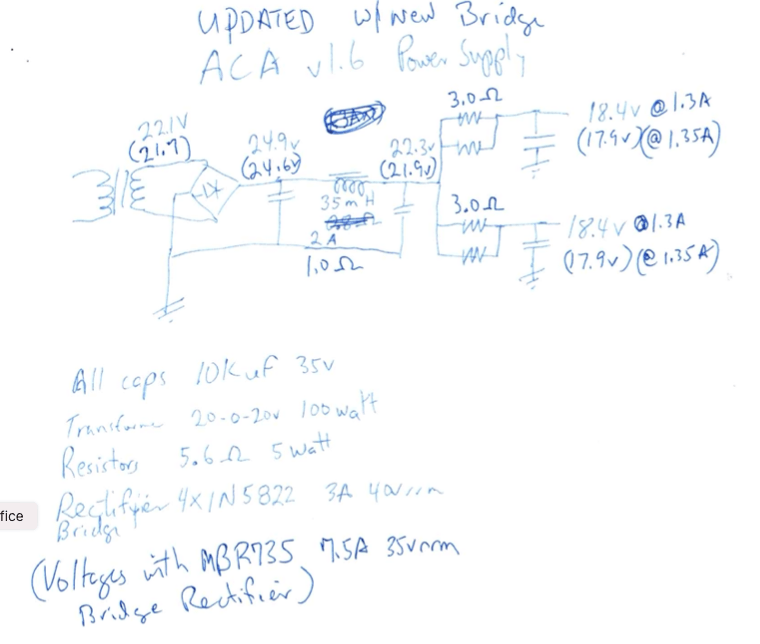 UPDATED w/ New Bridge
ACA v1.6 Power Supply
22.1V
(21.7)
24.9v
(24.6v)
35 mH
2 A
1.0 Ω
22.3v
(21.9v)
3.0 Ω
18.4v @ 1.3A
(17.9v)(@ 1.35A)
3.0 Ω
18.4v @ 1.3A
(17.9v)(@ 1.35A)
All caps 10K uf 35v
Transforme 20-0-20v 100 watt
Resistors 5.6 Ω 5 watt
Rectifier 4x 1N5822 3A 40Vrrm
Bridge
(Voltages with MBR735 7.5A 35vrrm
Bridge Rectifier)
fice